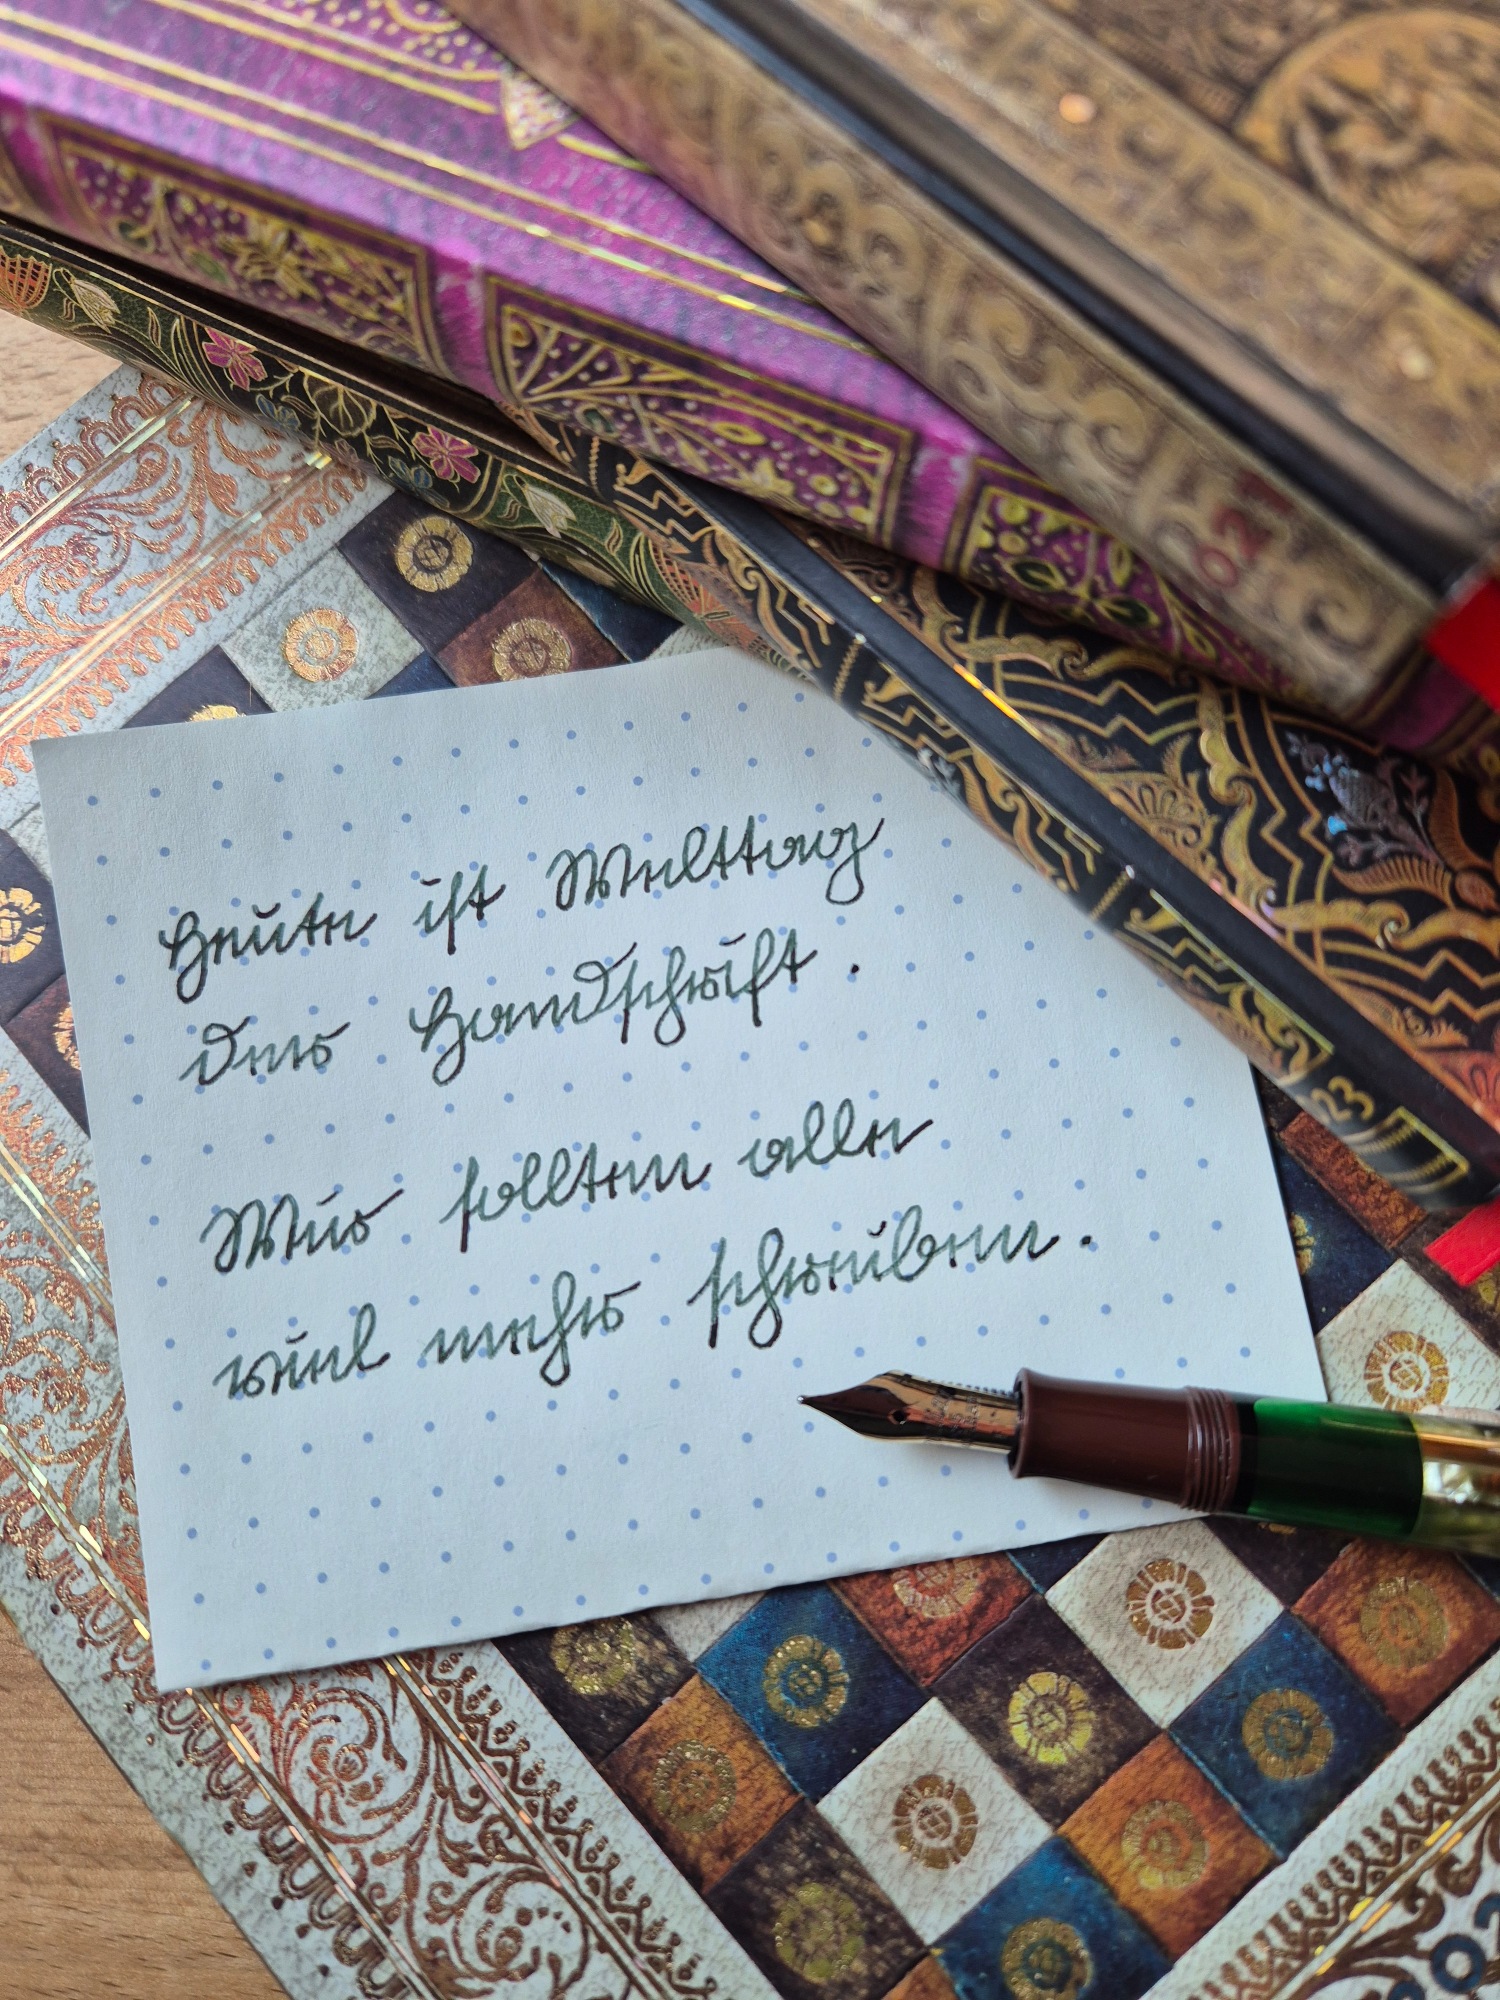 Heute ist Welttag
der Handschrift.
Wir sollten alle
viel mehr schreiben.
23